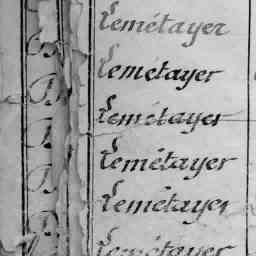 Lemétayer
Lemetayer
Lemétayer
Lemétayer
Lemétayer
Lemétayer